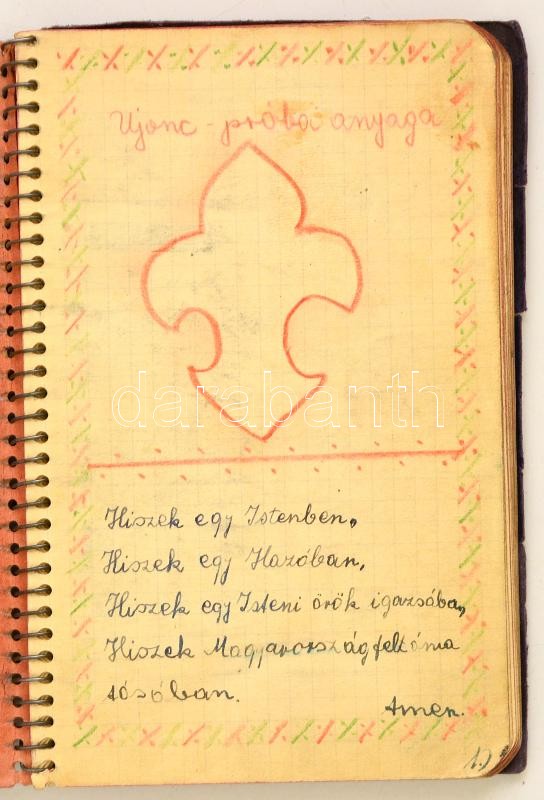 Ujonc - próba anyaga
darabanth
Hiszek egy Istenben,
Hiszek egy Hazában,
Hiszek egy Isteni örök igazsában,
Hiszek Magyarország feltáma
dásában.
Amen.
1.)